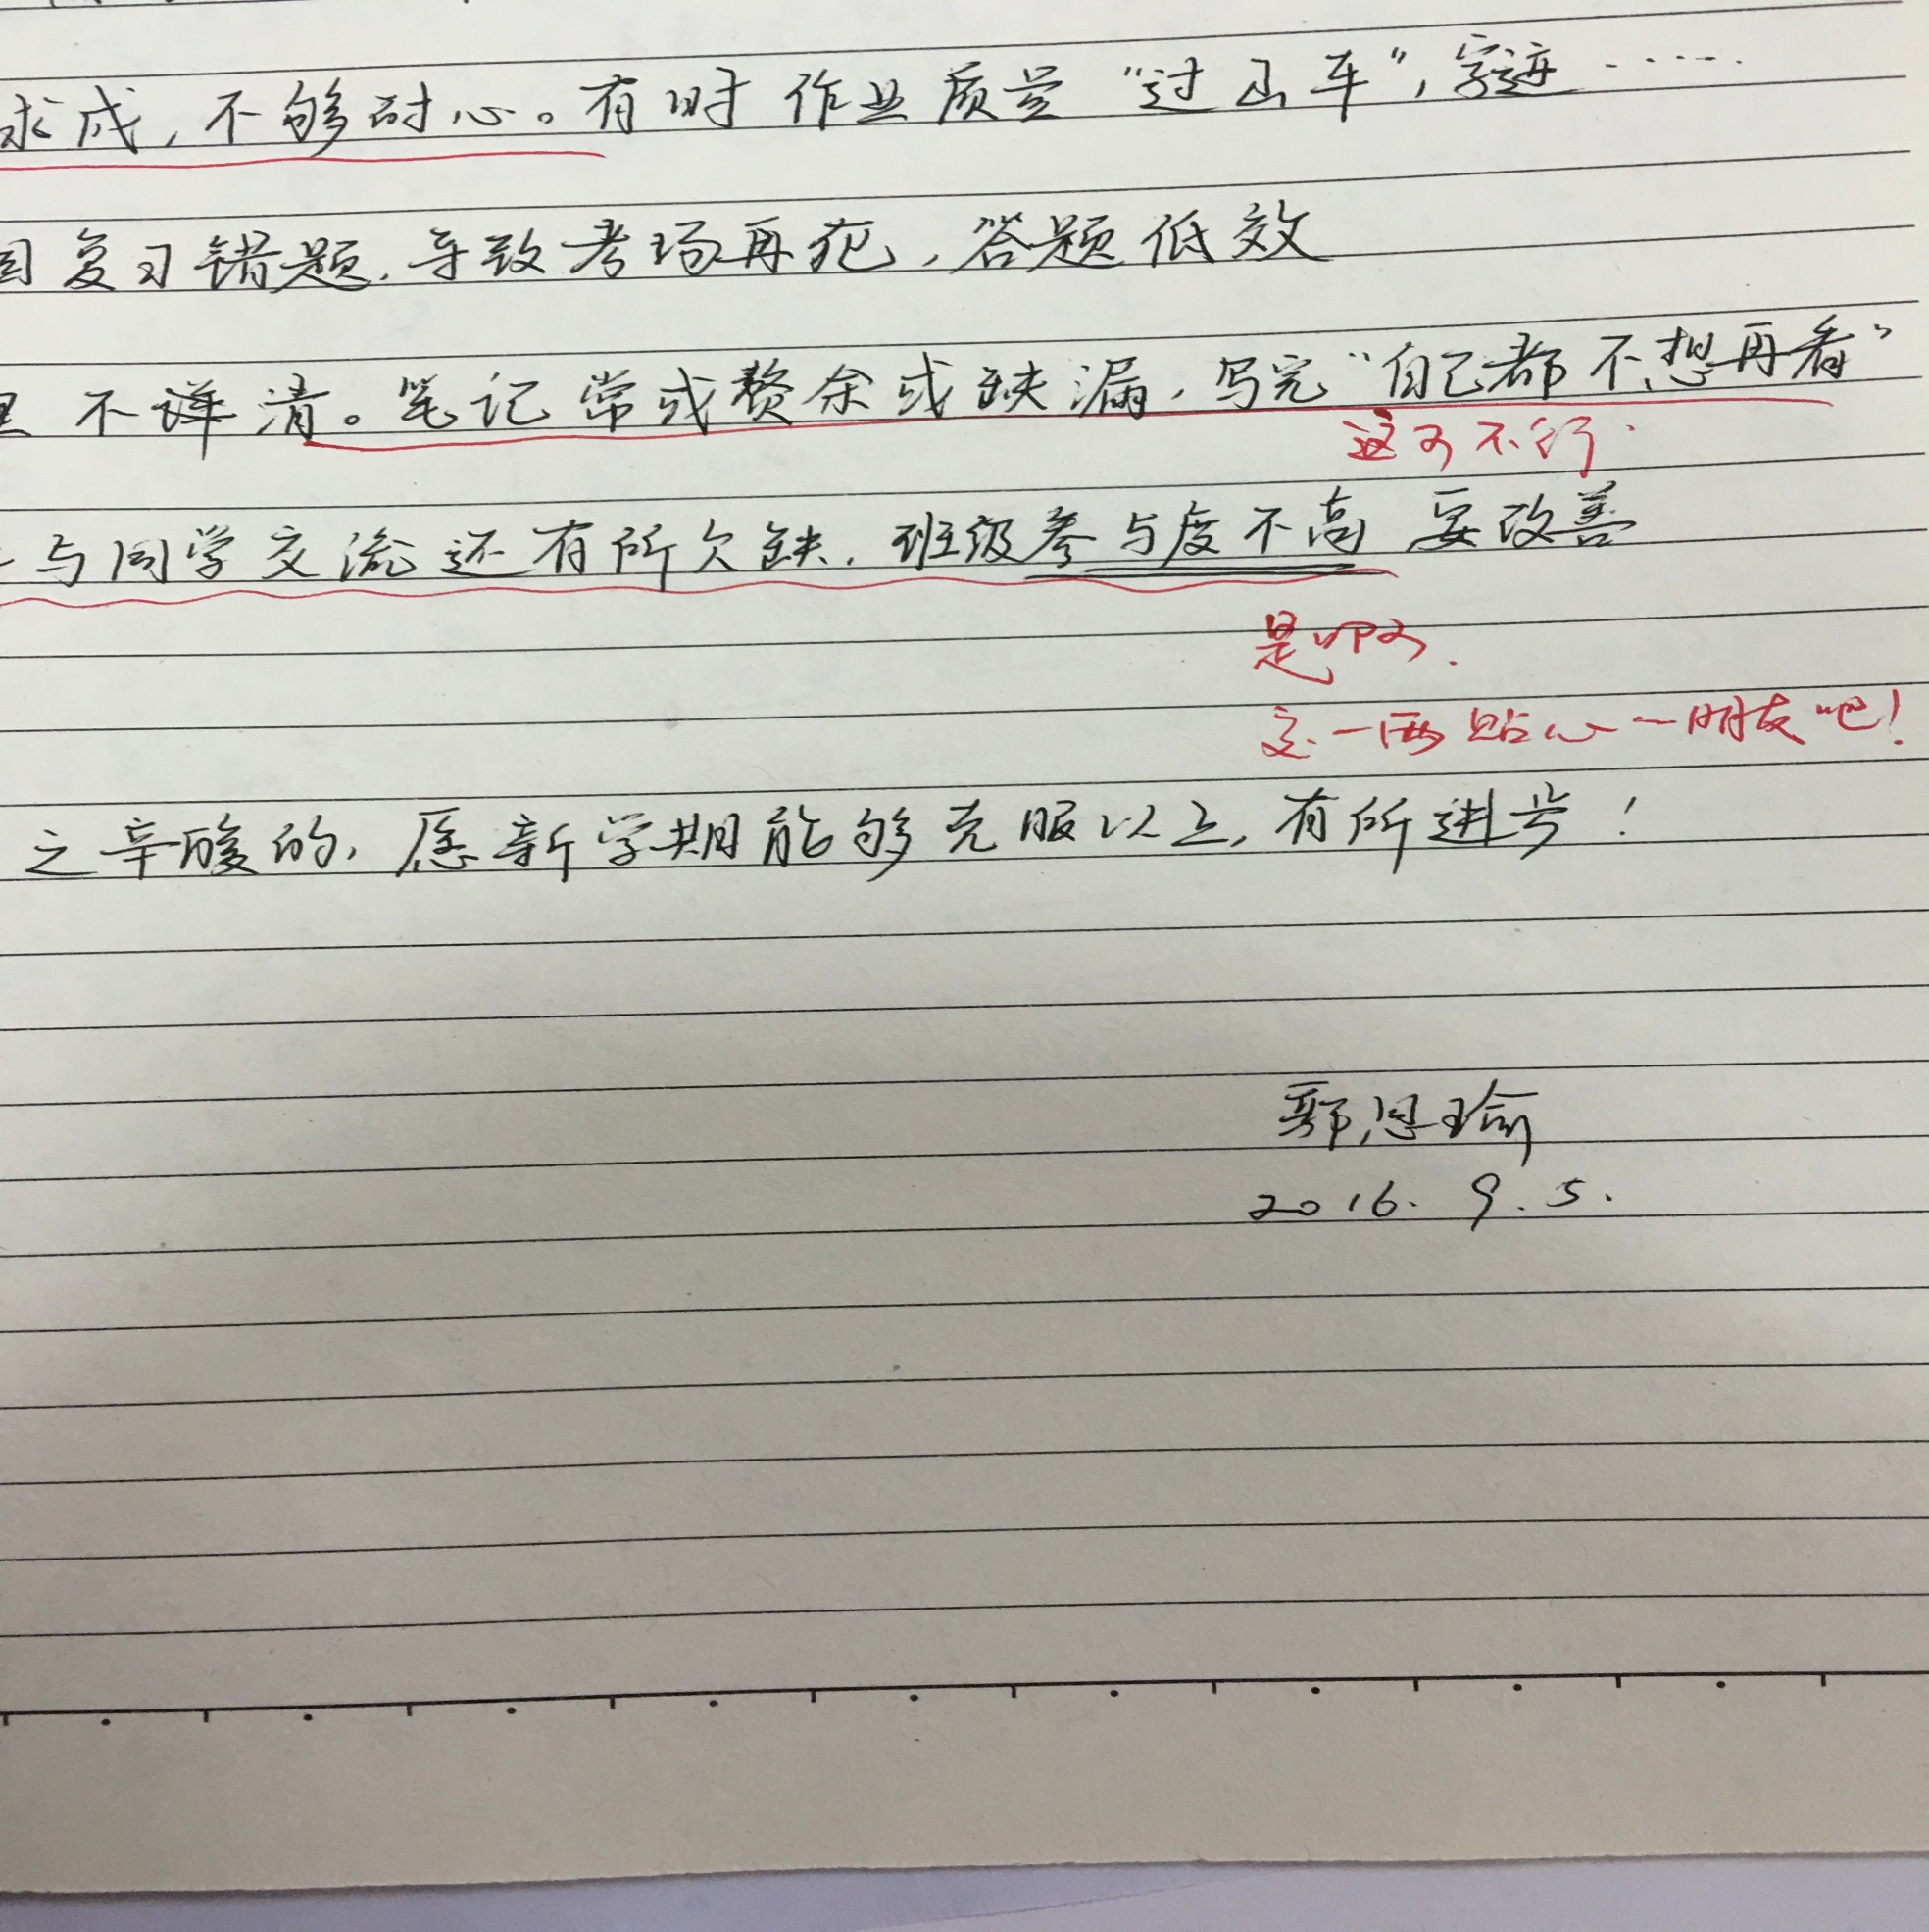 求成，不够耐心。有时作业质量“过山车”，字迹……
复习错题，导致考场再犯，答题低效
不详清。笔记常或赘余或缺漏，写完“自己都不想再看”
这可不行.
与同学交流还有所欠缺，班级参与度不高 要改善
是呀.
交一两贴心一朋友吧！
之辛酸的，愿新学期能够克服以上，有所进步！
郭思瑜
2016. 9. 5.